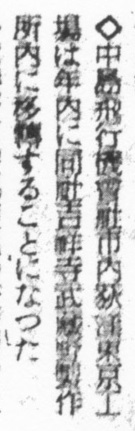 ◇中島飛行機會社市内荻窪東京工
場は年内に同社吉祥寺武蔵野製作
所内に移轉することになつた